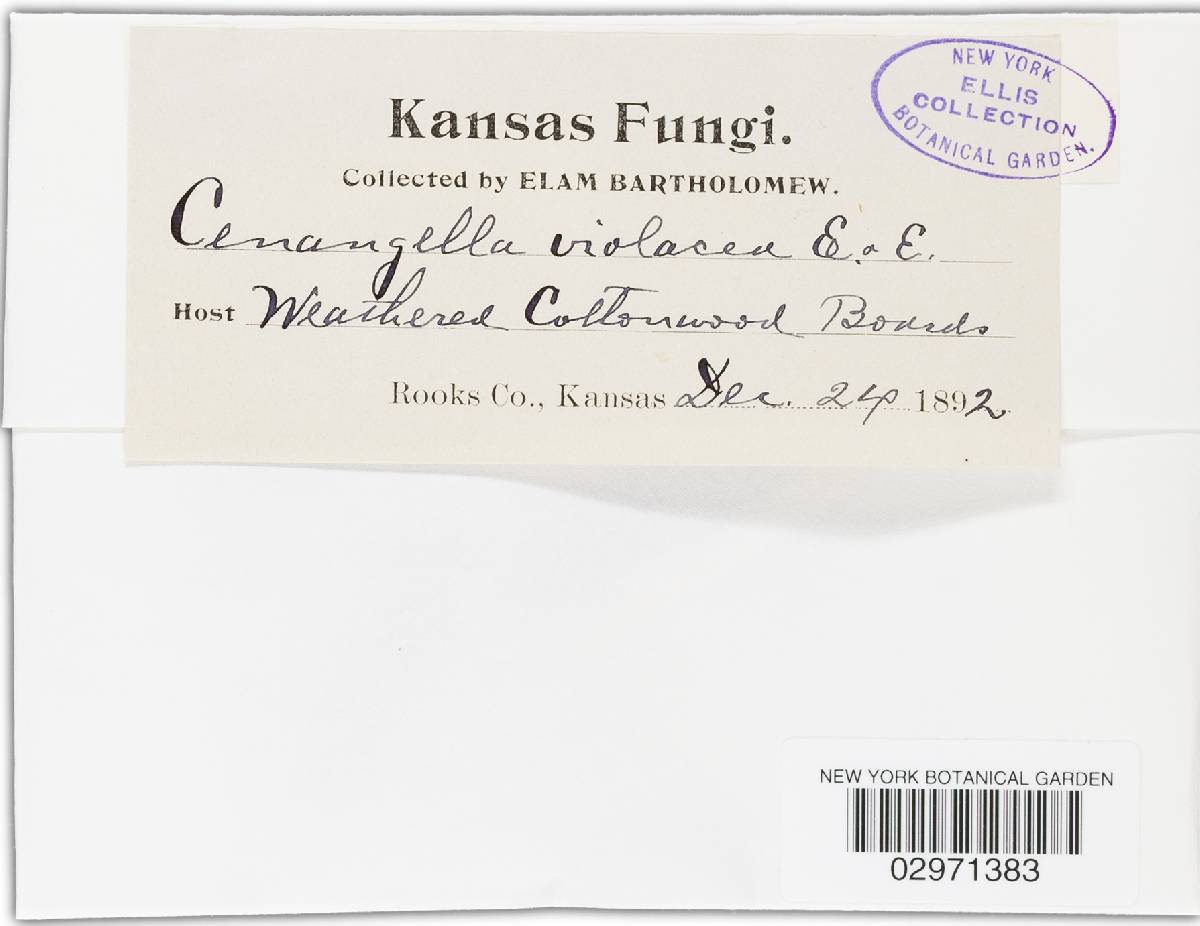 NEW YORK
ELLIS
COLLECTION
BOTANICAL GARDEN.
Kansas Fungi.
Collected by ELAM BARTHOLOMEW.
Cenangella violacea E. & E.
Host Weathered Cottonwood Boards
Rooks Co., Kansas Dec. 24 1892
NEW YORK BOTANICAL GARDEN
02971383